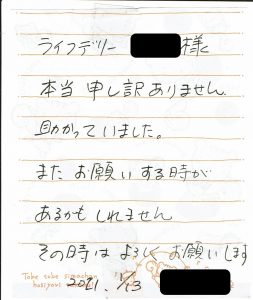 ライフデリー 様
本当 申し訳ありません
助かっていました。
また お願いする時が
あるかもしれません
その時は よろしくお願いします
Tobe tobe simachan
2021. 1/13